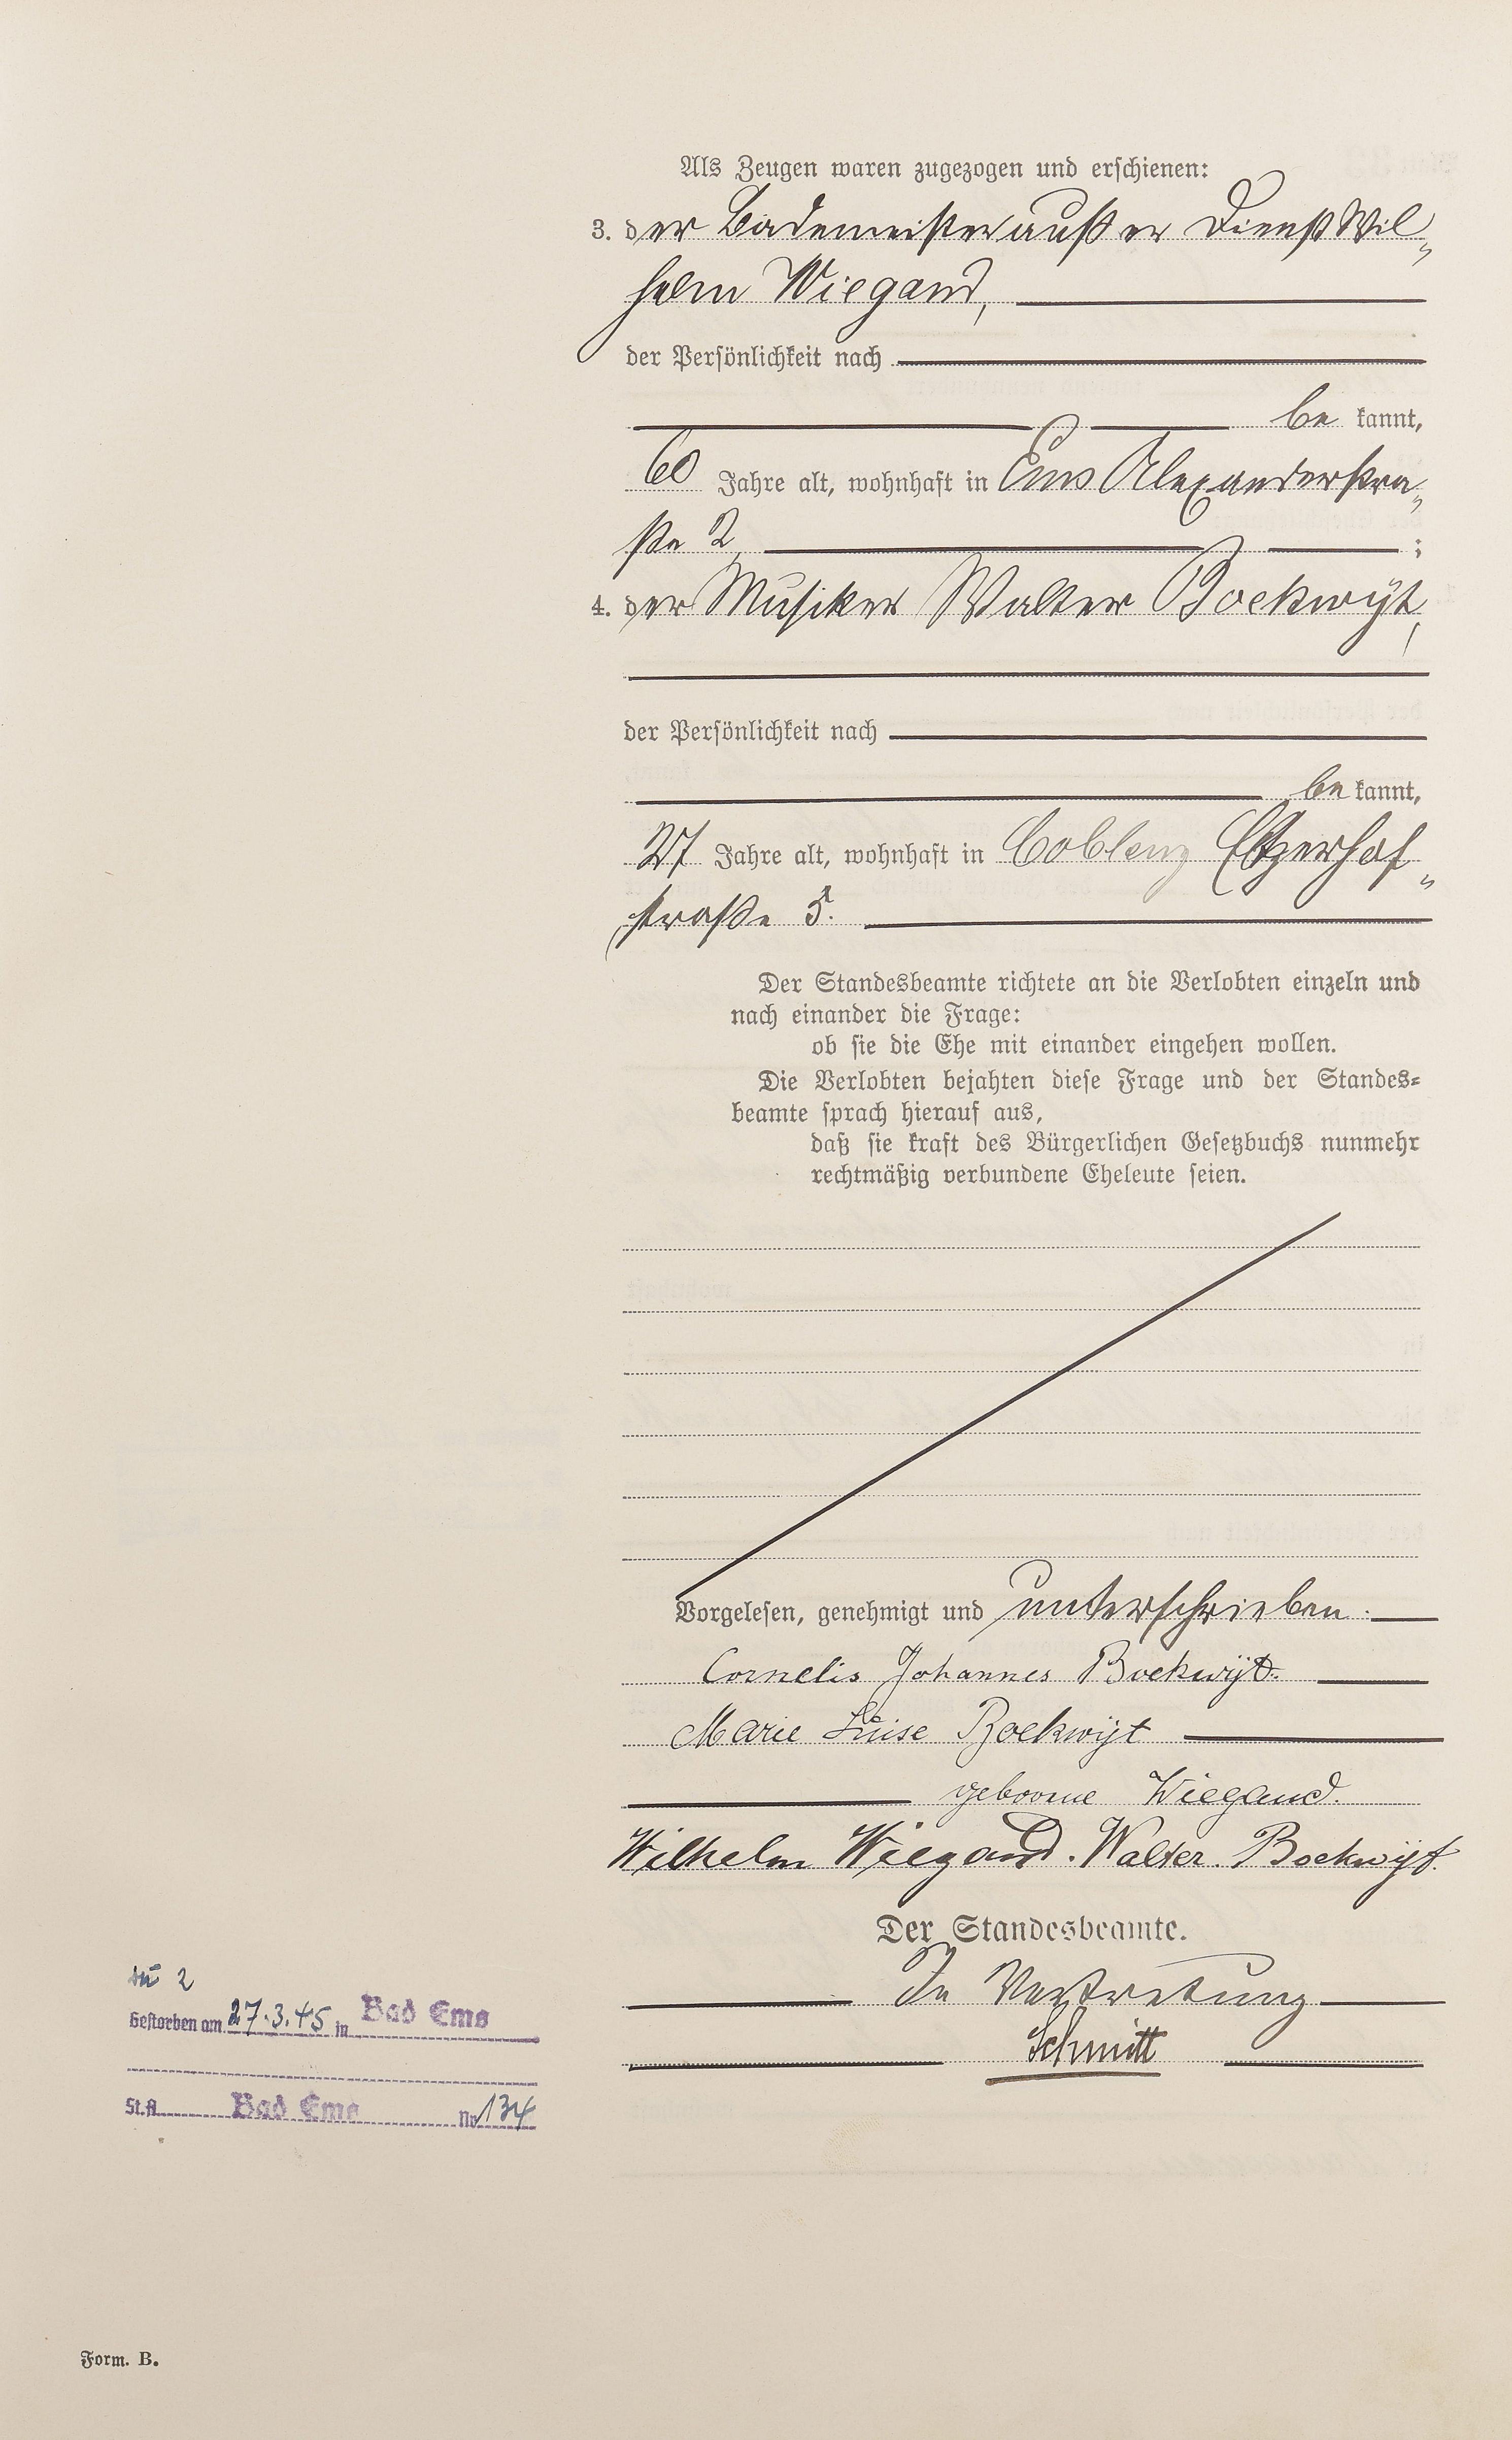 Als Zeugen waren zugezogen und erschienen:
3. der Bademeister außer Dienst Wil„
helm Wiegand,
der Persönlichkeit nach
be kannt,
60 Jahre alt, wohnhaft in Ems Alexanderstra„
ße 2 ;
4. der Musiker Walter Boekwijt,
der Persönlichkeit nach
be kannt,
27 Jahre alt, wohnhaft in Coblenz Eltzerhof„
straße 5.
Der Standesbeamte richtete an die Verlobten einzeln und
nach einander die Frage:
ob sie die Ehe mit einander eingehen wollen.
Die Verlobten bejahten diese Frage und der Standes-
beamte sprach hierauf aus,
daß sie kraft des Bürgerlichen Gesetzbuchs nunmehr
rechtmäßig verbundene Eheleute seien.
Vorgelesen, genehmigt und unterschrieben.
Cornelis Johannes Boekwijt.
Marie Luise Boekwijt
geborene Wiegand.
Wilhelm Wiegand. Walter. Boekwijt.
Der Standesbeamte.
In Vertretung
Schmitt
zu 2
Gestorben am 27.3.45 in Bad Ems
St.A Bad Ems No 134
Form. B.